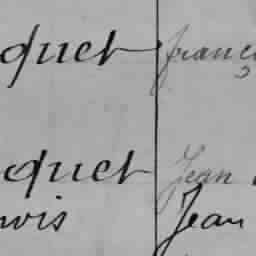 quet franç
quet Jean
wis Jean